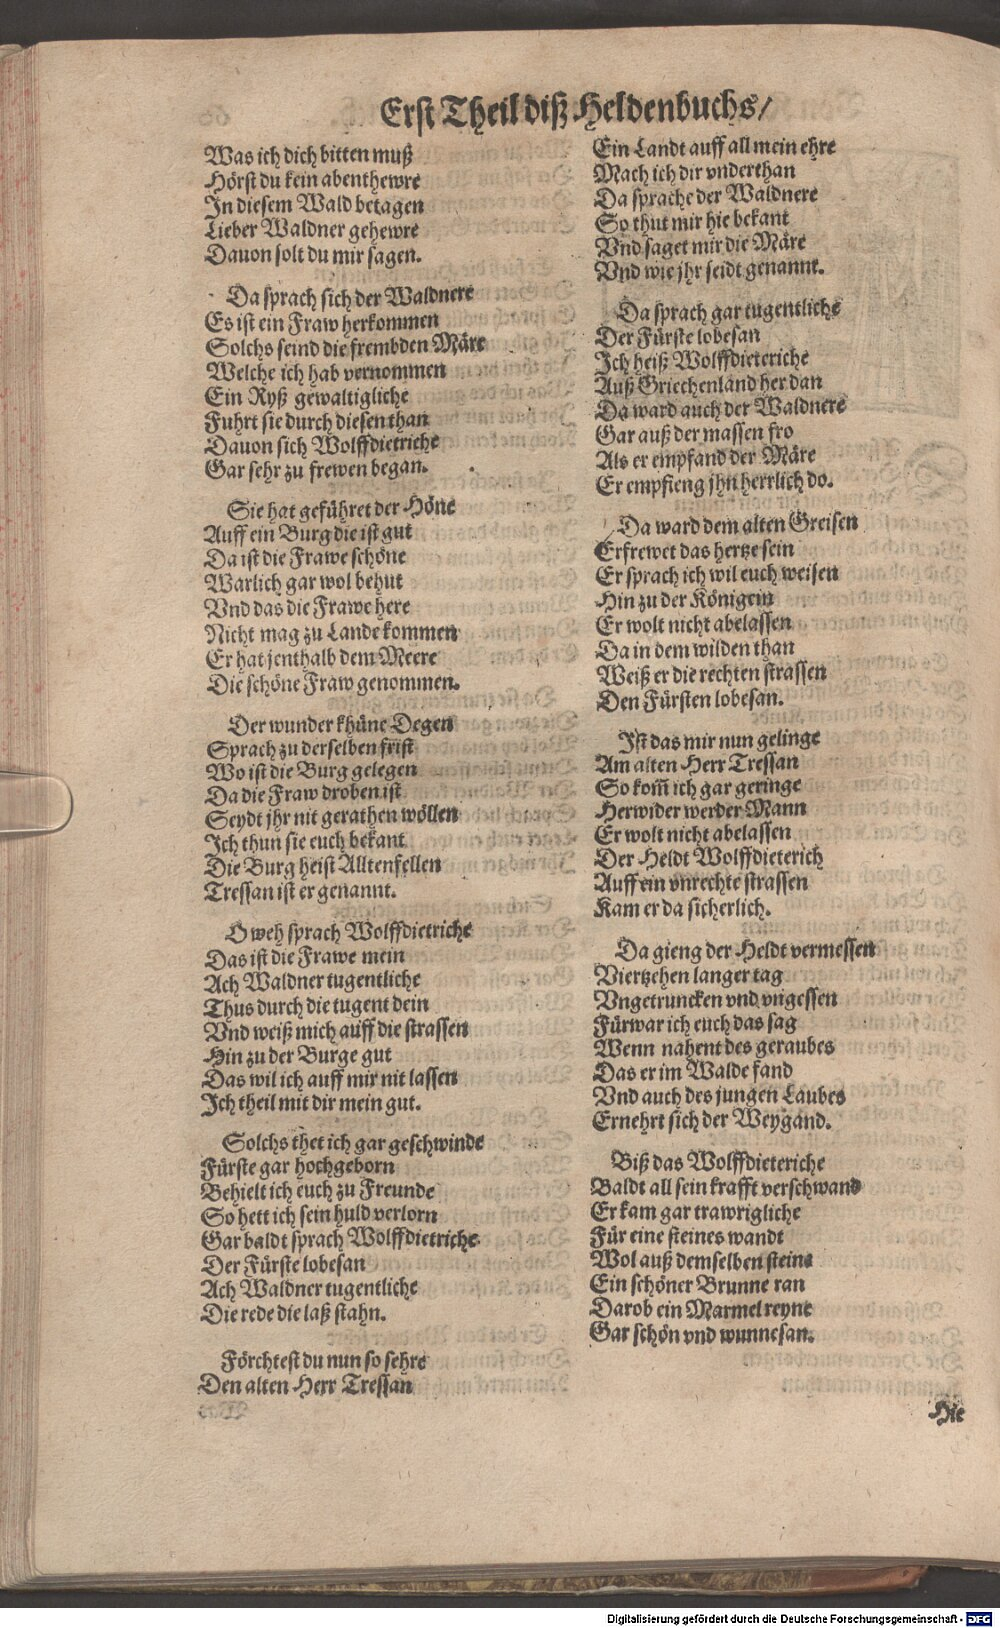 Erst Theil diß Heldenbuchs/
Was ich dich bitten muß
Hörst du kein abenthewre
In diesem Wald betagen
Lieber Waldner gehewre
Dauon solt du mir sagen.
Da sprach sich der Waldnere
Es ist ein Fraw herkommen
Solchs seind die frembden Märe
Welche ich hab vernommen
Ein Ryß gewaltigliche
Fuhrt sie durch diesen than
Dauon sich Wolffdietriche
Gar sehr zu frewen began.
Sie hat geführet der Höne
Auff ein Burg die ist gut
Da ist die Frawe schöne
Warlich gar wol behut
Vnd das die Frawe here
Nicht mag zu Lande kommen
Er hat jenthalb dem Meere
Die schöne Fraw genommen.
Der wunder khüne Degen
Sprach zu derselben frist
Wo ist die Burg gelegen
Da die Fraw droben ist
Seydt jhr nit gerathen wöllen
Ich thun sie euch bekant
Die Burg heist Alltenfellen
Tressan ist er genannt.
O weh sprach Wolffdietriche
Das ist die Frawe mein
Ach Waldner tugentliche
Thus durch die tugent dein
Vnd weiß mich auff die strassen
Hin zu der Burge gut
Das wil ich auff mir nit lassen
Ich theil mit dir mein gut.
Solchs thet ich gar geschwinde
Fürste gar hochgeborn
Behielt ich euch zu Freunde
So hett ich sein huld verlorn
Gar baldt sprach Wolffdietriche
Der Fürste lobesan
Ach Waldner tugentliche
Die rede die laß stahn.
Förchtest du nun so sehre
Den alten Herr Tressan
Ein Landt auff all mein ehre
Mach ich dir vnderthan
Da sprache der Waldnere
So thut mir hie bekant
Vnd saget mir die Märe
Vnd wie jhr seidt genannt.
Da sprach gar tugentliche
Der Fürste lobesan
Ich heiß Wolffdieteriche
Auß Griechenland her dan
Da ward auch der Waldnere
Gar auß der massen fro
Als er empfand der Märe
Er empfieng jhn herrlich do.
Da ward dem alten Greisen
Erfrewet das hertze sein
Er sprach ich wil euch weisen
Hin zu der Königein
Er wolt nicht abelassen
Da in dem wilden than
Weiß er die rechten strassen
Den Fürsten lobesan.
Ist das mir nun gelinge
Am alten Herr Tressan
So kom̃ ich gar geringe
Herwider werder Mann
Er wolt nicht abelassen
Der Heldt Wolffdieterich
Auff ein vnrechte strassen
Kam er da sicherlich.
Da gieng der Heldt vermessen
Viertzehen langer tag
Vngetruncken vnd vngessen
Fürwar ich euch das sag
Wenn nahent des geraubes
Das er im Walde fand
Vnd auch des jungen Laubes
Ernehrt sich der Weygand.
Biß das Wolffdieteriche
Baldt all sein krafft verschwand
Er kam gar trawrigliche
Für eine steines wandt
Wol auß demselben steine
Ein schöner Brunne ran
Darob ein Marmel reyne
Gar schön vnd wunnesan.
Hie
Digitalisierung gefördert durch die Deutsche Forschungsgemeinschaft - DFG